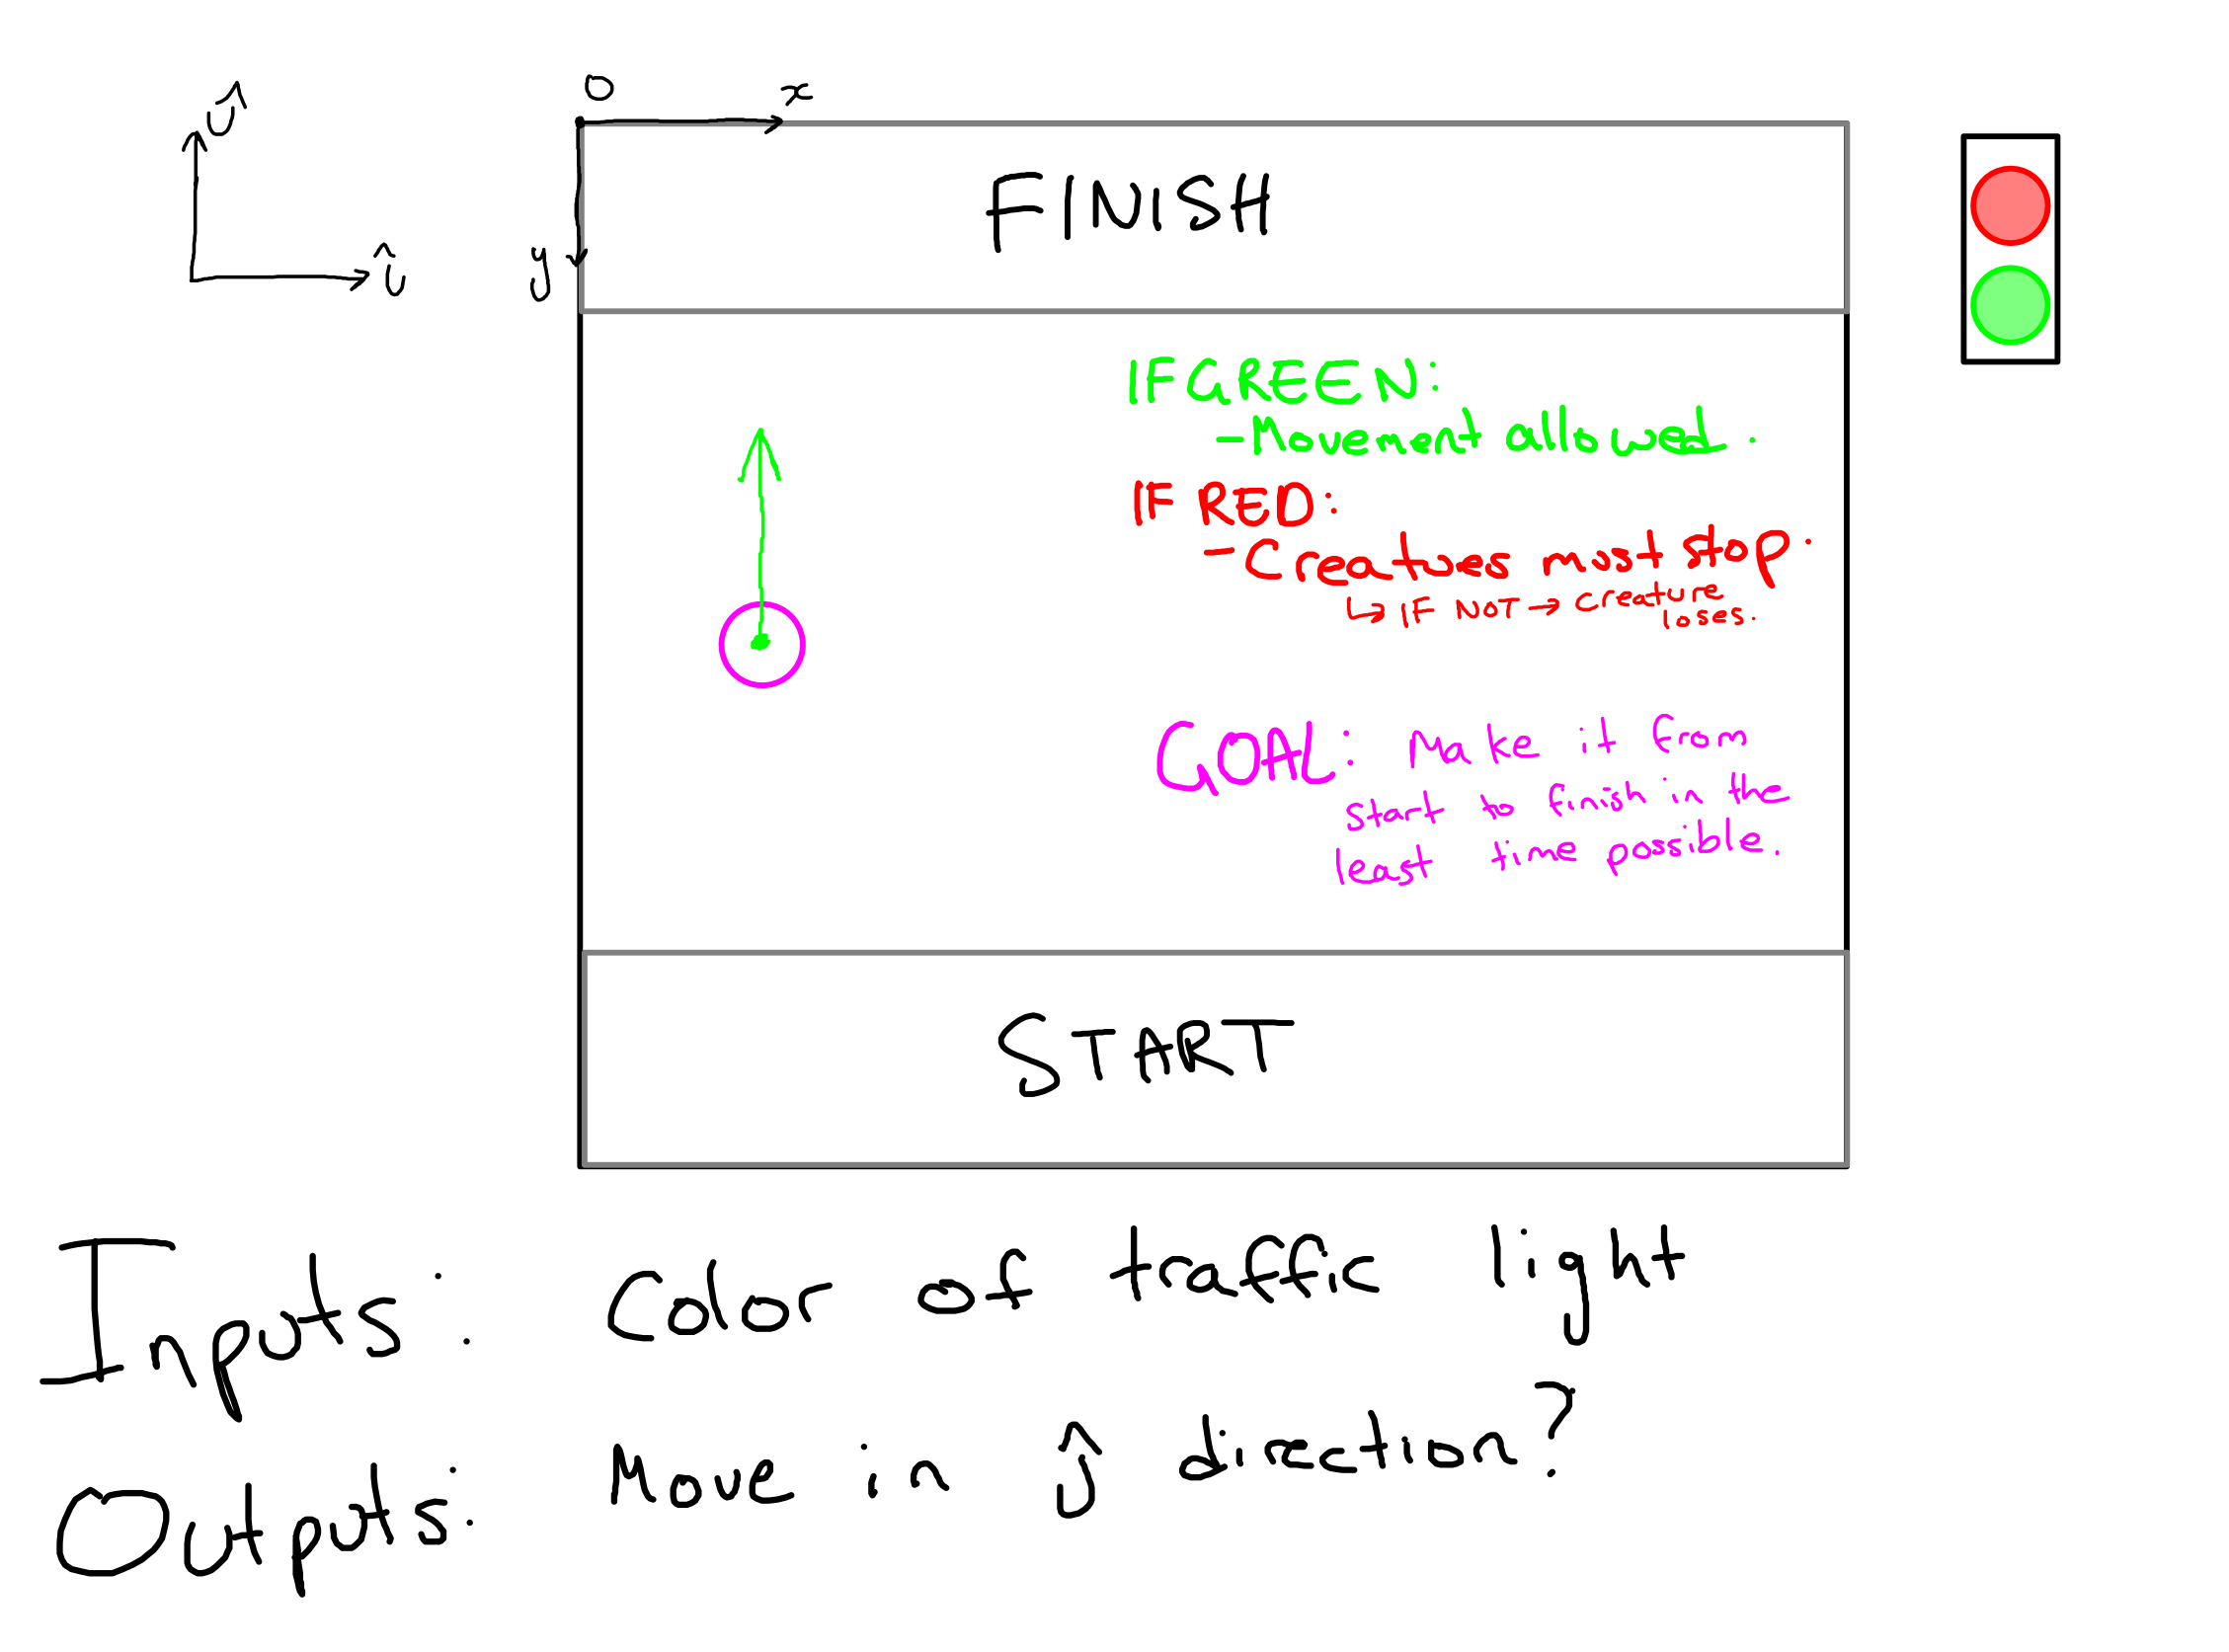 O
x
ĵ
î
y
FINISH
IF GREEN:
- Movement allowed.
IF RED:
- Creatures must stop.
↳ IF NOT → creature
loses.
GOAL: Make it from
start to finish in the
least time possible.
START
Inputs: Color of traffic light
Outputs: Move in ĵ direction?